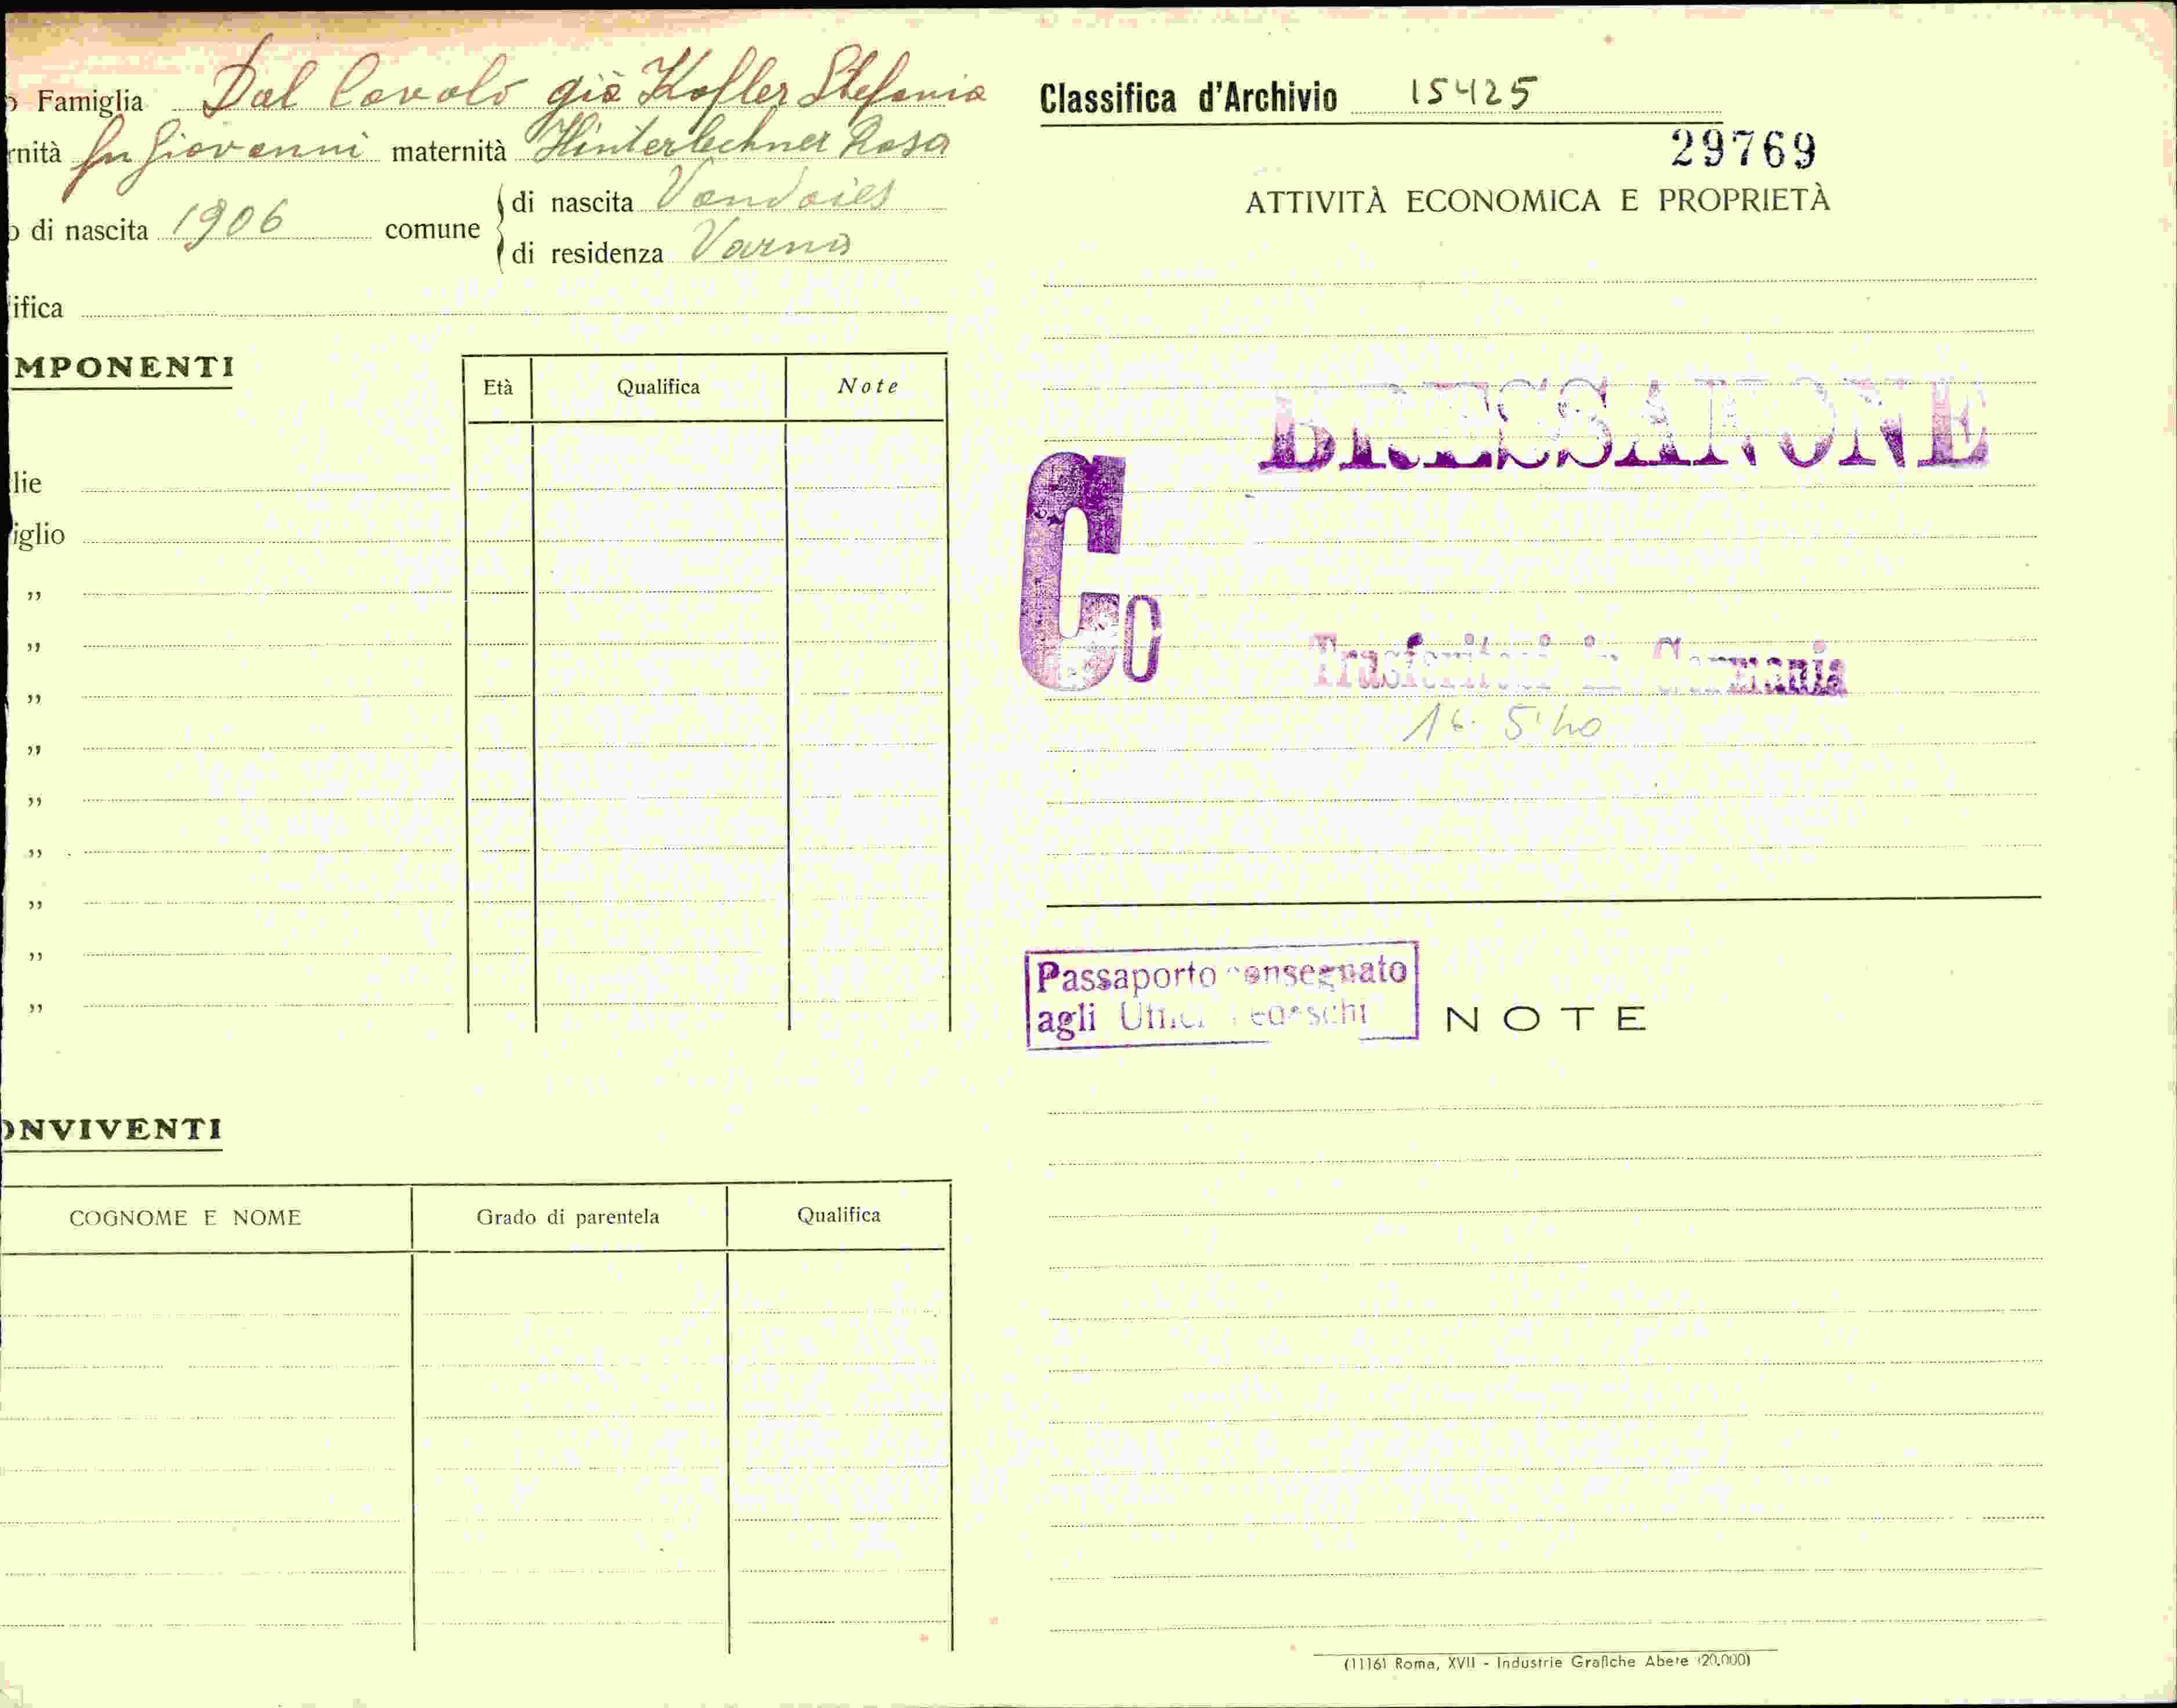 Famiglia Dal Cavolo già Kofler Stefania
rnità fu Giovanni maternità Hinterlechner Rosa
di nascita 1906 comune
di nascita Vandoies
di residenza Varna
ifica
MPONENTI
Età Qualifica Note
lie
iglio
”
”
”
”
”
”
”
”
”
ONVIVENTI
COGNOME E NOME Grado di parentela Qualifica
Classifica d'Archivio 15425
29769
ATTIVITÀ ECONOMICA E PROPRIETÀ
BRESSANONE
Cc
Trasferitosi in Germania
16. 5. 40
Passaporto consegnato
agli Uffici Tedeschi
NOTE
(1116) Roma, XVII - Industrie Grafiche Abete (20.000)